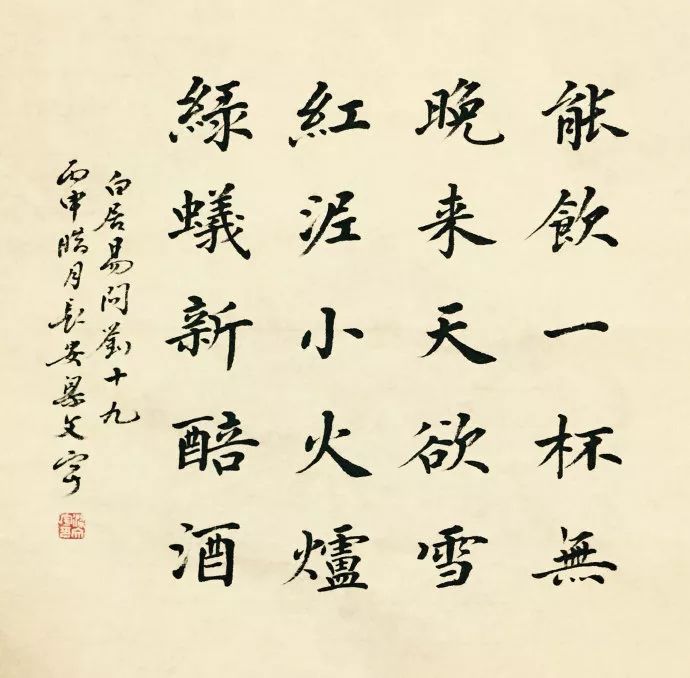 綠蟻新醅酒
紅泥小火爐
晚来天欲雪
能飲一杯無
白居易問劉十九
丙申月長安梁文